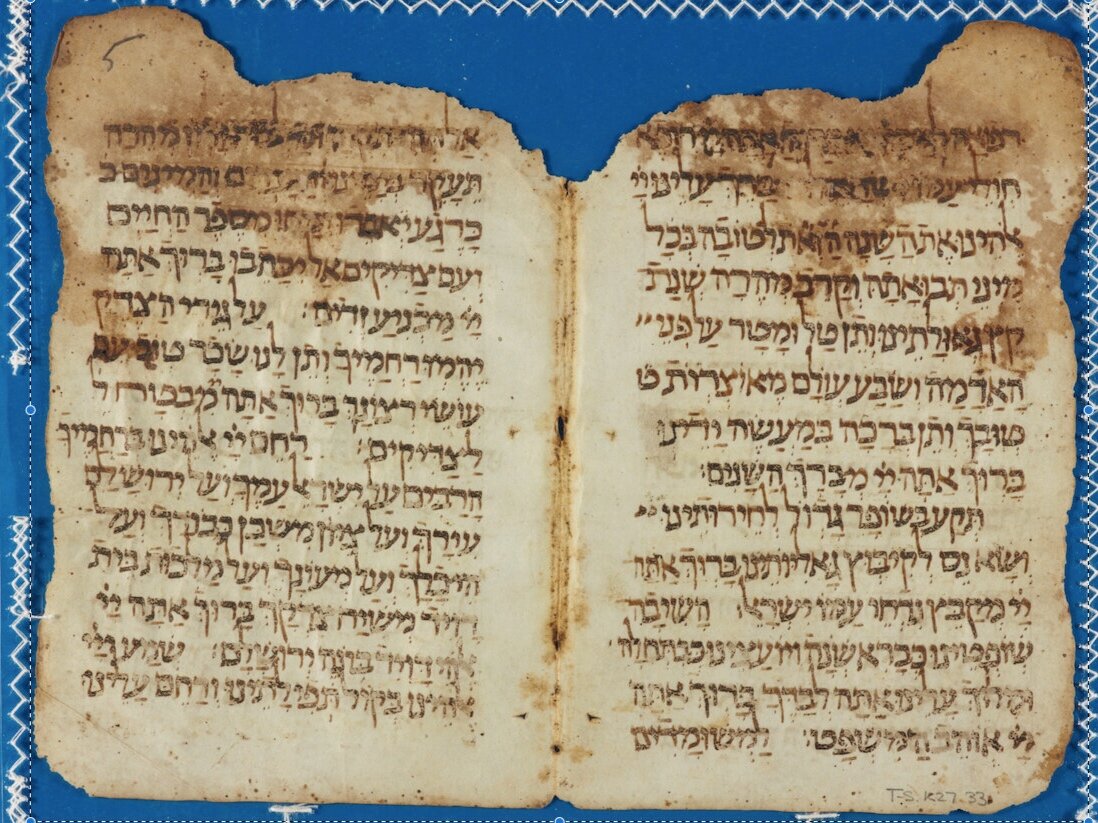 חולי עמו ברך עלינו יי
אלהינו את השנה הזאת וטובה בכל
מיני תבואתה וקרב מהרה שנת
קץ גאולתינו ותן טל ומטר על פני
האדמה ושבע עולם מאוצרות ט
טובך ותן ברכה במעשה ידינו
ברוך אתה יי מברך השנים:
תקע בשופר גדול לחירותינו
ושא נס לקיבוץ גאליותינו ברוך אתה
יי מקבץ נדחי עמו ישראל השיבה
שופטינו ככראשנה ויועצינו כבתחלה
ומלוך עלינו אתה לבדך ברוך אתה
יי אוהב המשפט: למשומדים
אל תהי מהרה
תעקר והמינים כ
כרגע יאבדו וימחו מספר החיים
ועם צדיקים אל יכתבו ברוך אתה
יי מכניע זדים: על גירי הצדק
יהמו רחמיך ותן לנו שכר טוב עם
עושי רצונך ברוך אתה יי מבטח ל
לצדיקים: רחם יי אלהינו ברחמיך
הרבים על ישראל עמך ועל ירושלם
עירך ועל ציון משכן כבודך ועל
היכלך ועל מעונך ועל מלכות בית
דויד משיח צדקך ברוך אתה יי
אלהי דויד בונה ירושלם: שמע יי
אלהינו בקול תפילתינו ורחם עלינו
5
T-S. K27.33